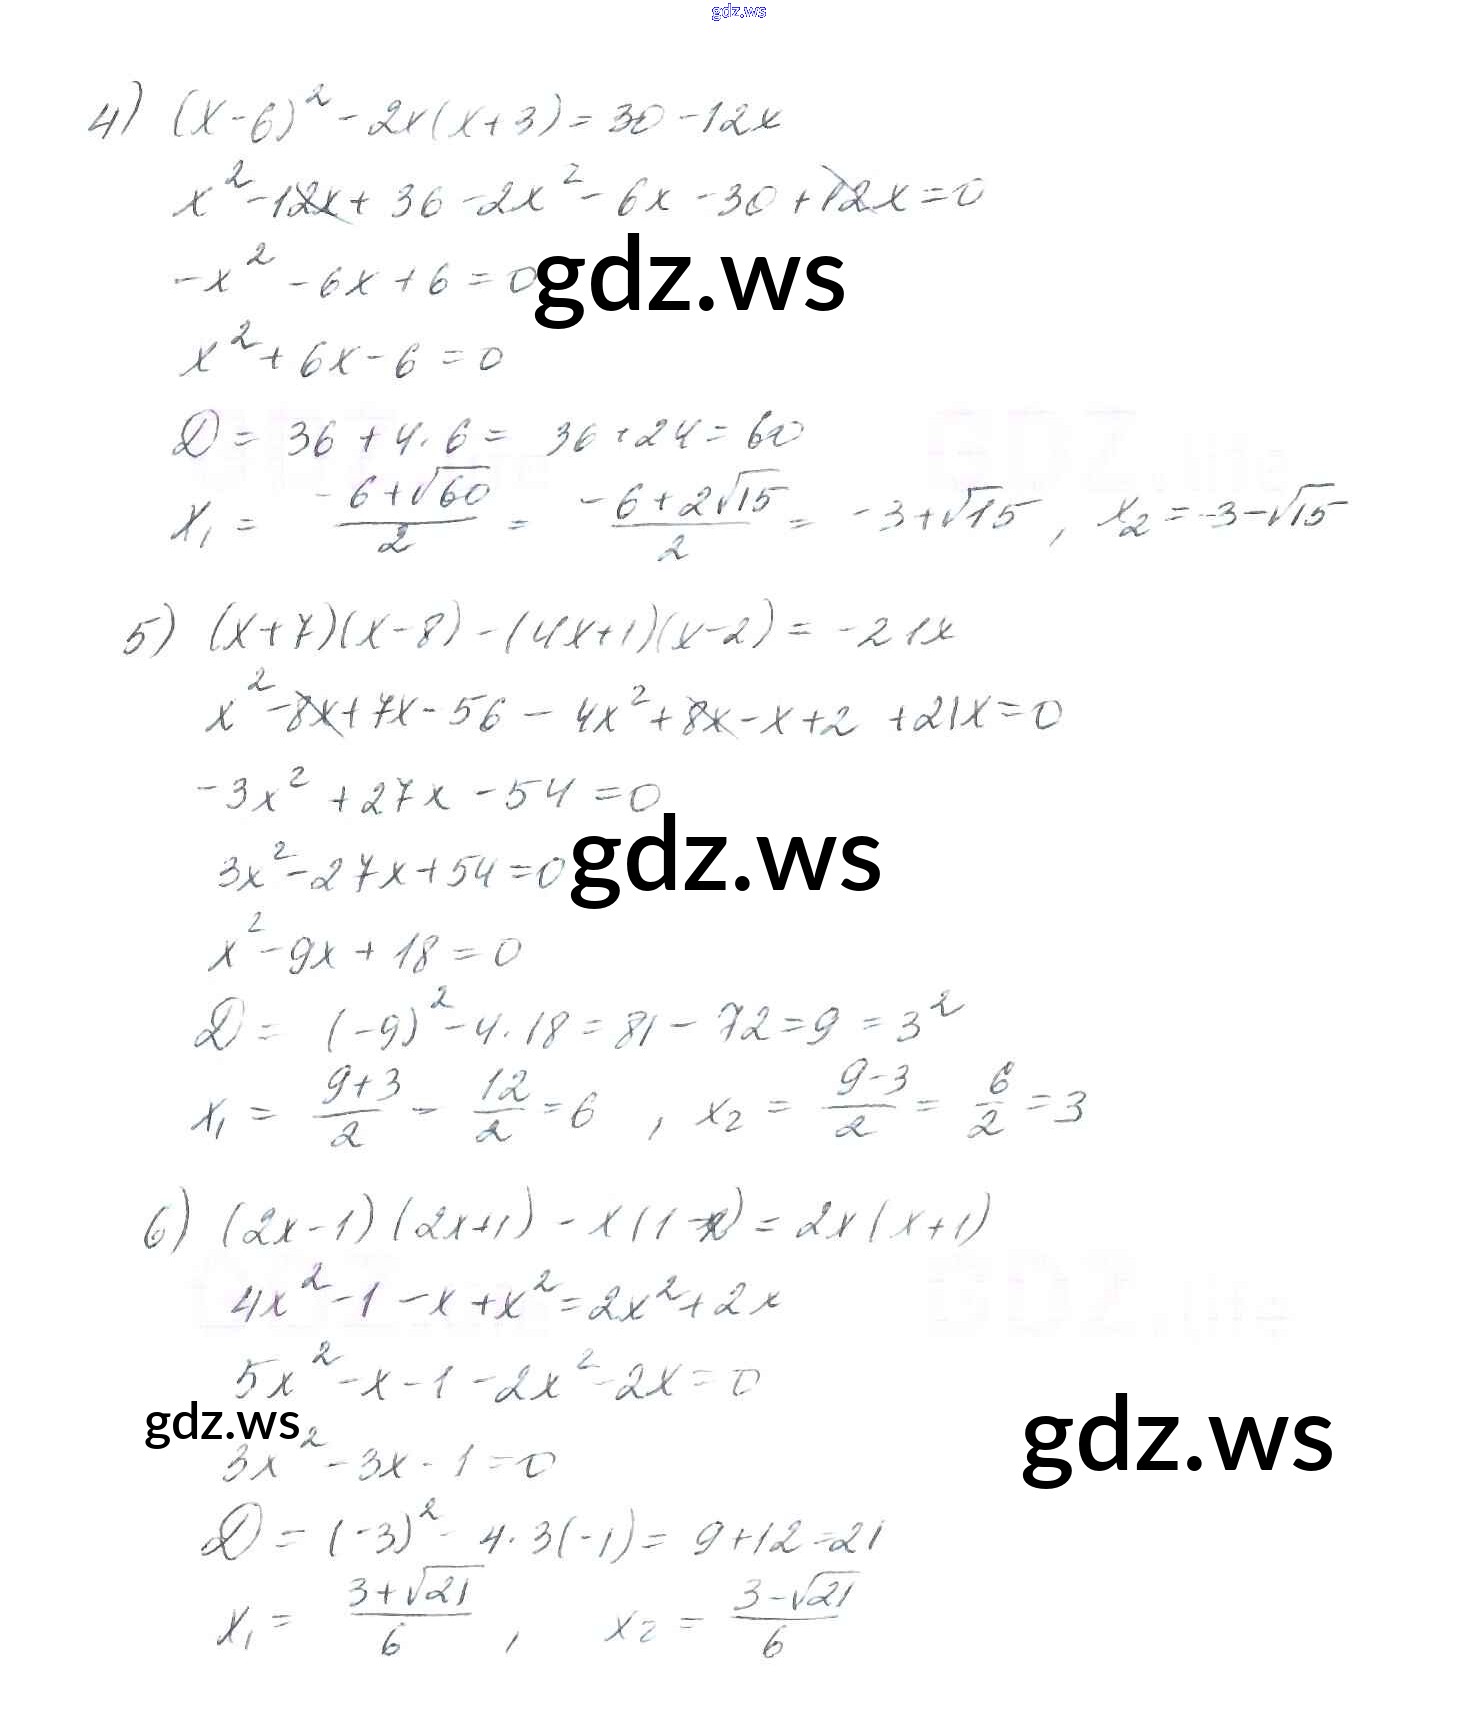 gdz.ws
4) (x-6)² - 2x(x+3) = 30 - 12x
x² - 12x + 36 - 2x² - 6x - 30 + 12x = 0
-x² - 6x + 6 = 0
gdz.ws
x² + 6x - 6 = 0
D = 36 + 4·6 = 36 + 24 = 60
x₁ = (-6+√60)/2 = (-6+2√15)/2 = -3+√15, x₂ = -3-√15
5) (x+7)(x-8) - (4x+1)(x-2) = -21x
x² - 8x + 7x - 56 - 4x² + 8x - x + 2 + 21x = 0
-3x² + 27x - 54 = 0
3x² - 27x + 54 = 0
gdz.ws
x² - 9x + 18 = 0
D = (-9)² - 4·18 = 81 - 72 = 9 = 3²
x₁ = (9+3)/2 = 12/2 = 6, x₂ = (9-3)/2 = 6/2 = 3
6) (2x-1)(2x+1) - x(1-x) = 2x(x+1)
4x² - 1 - x + x² = 2x² + 2x
5x² - x - 1 - 2x² - 2x = 0
gdz.ws
gdz.ws
3x² - 3x - 1 = 0
D = (-3)² - 4·3(-1) = 9 + 12 = 21
x₁ = (3+√21)/6, x₂ = (3-√21)/6